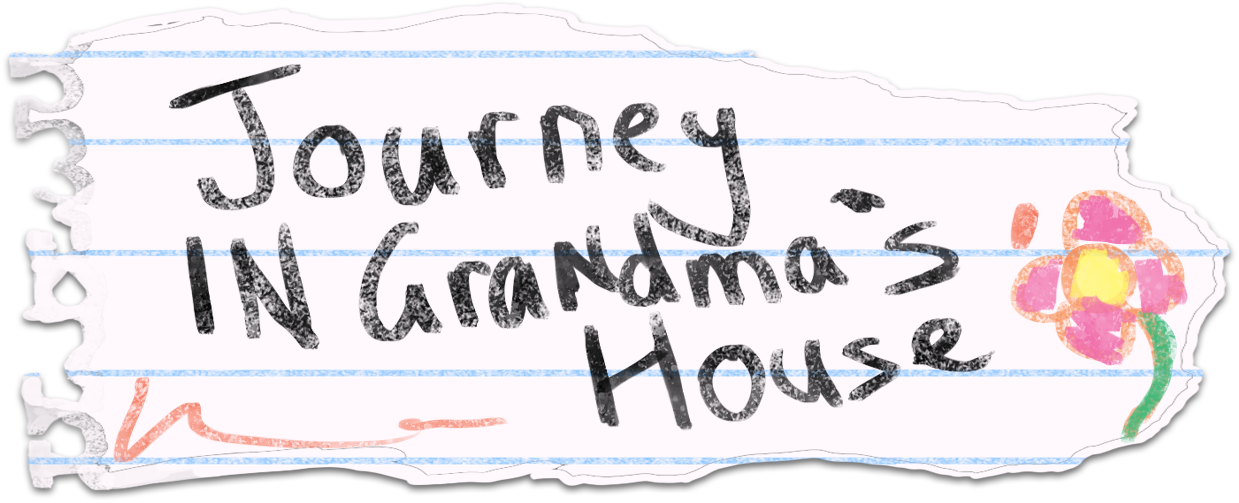 Journey
IN GraNdma's
House